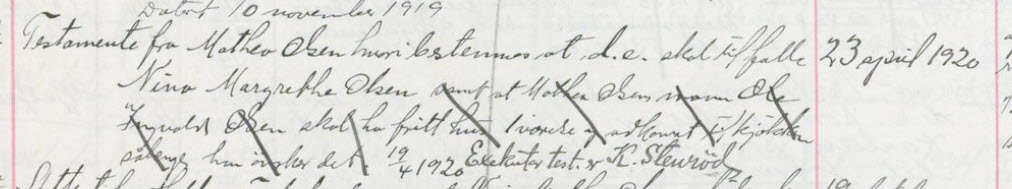 Datert 10 november 1919
Testamente fra Mathea Olsen hvori bestemmes at d.e. skal tilfalle 23 april 1920
Nina Margrethe Olsen samt at Mathea Olsens mann Ole
Ingvald Olsen skal ha fritt hus 1 værelse og adkomst til kjøkken
sålenge han ønsker det. 19/4 1920 Exekutor test. er K. Stenrød